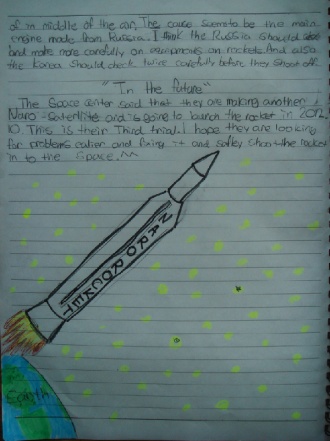 of in middle of the air, The cause seems to be the main
engine made from Russia. I think the Russia should
and make more carefully on on rockets And also
the korea Should check twice carefully before they shoot off.
"In the future"
The Space center said that they are making another
Naro - Satertlite and is going to launch the rocket in 2012.
10. This is their Third trial. I hope they are looking
for problems ealier and fixing it and safley shoot the rocket
in to the Space. ^^
NARO ROCKET
Earth